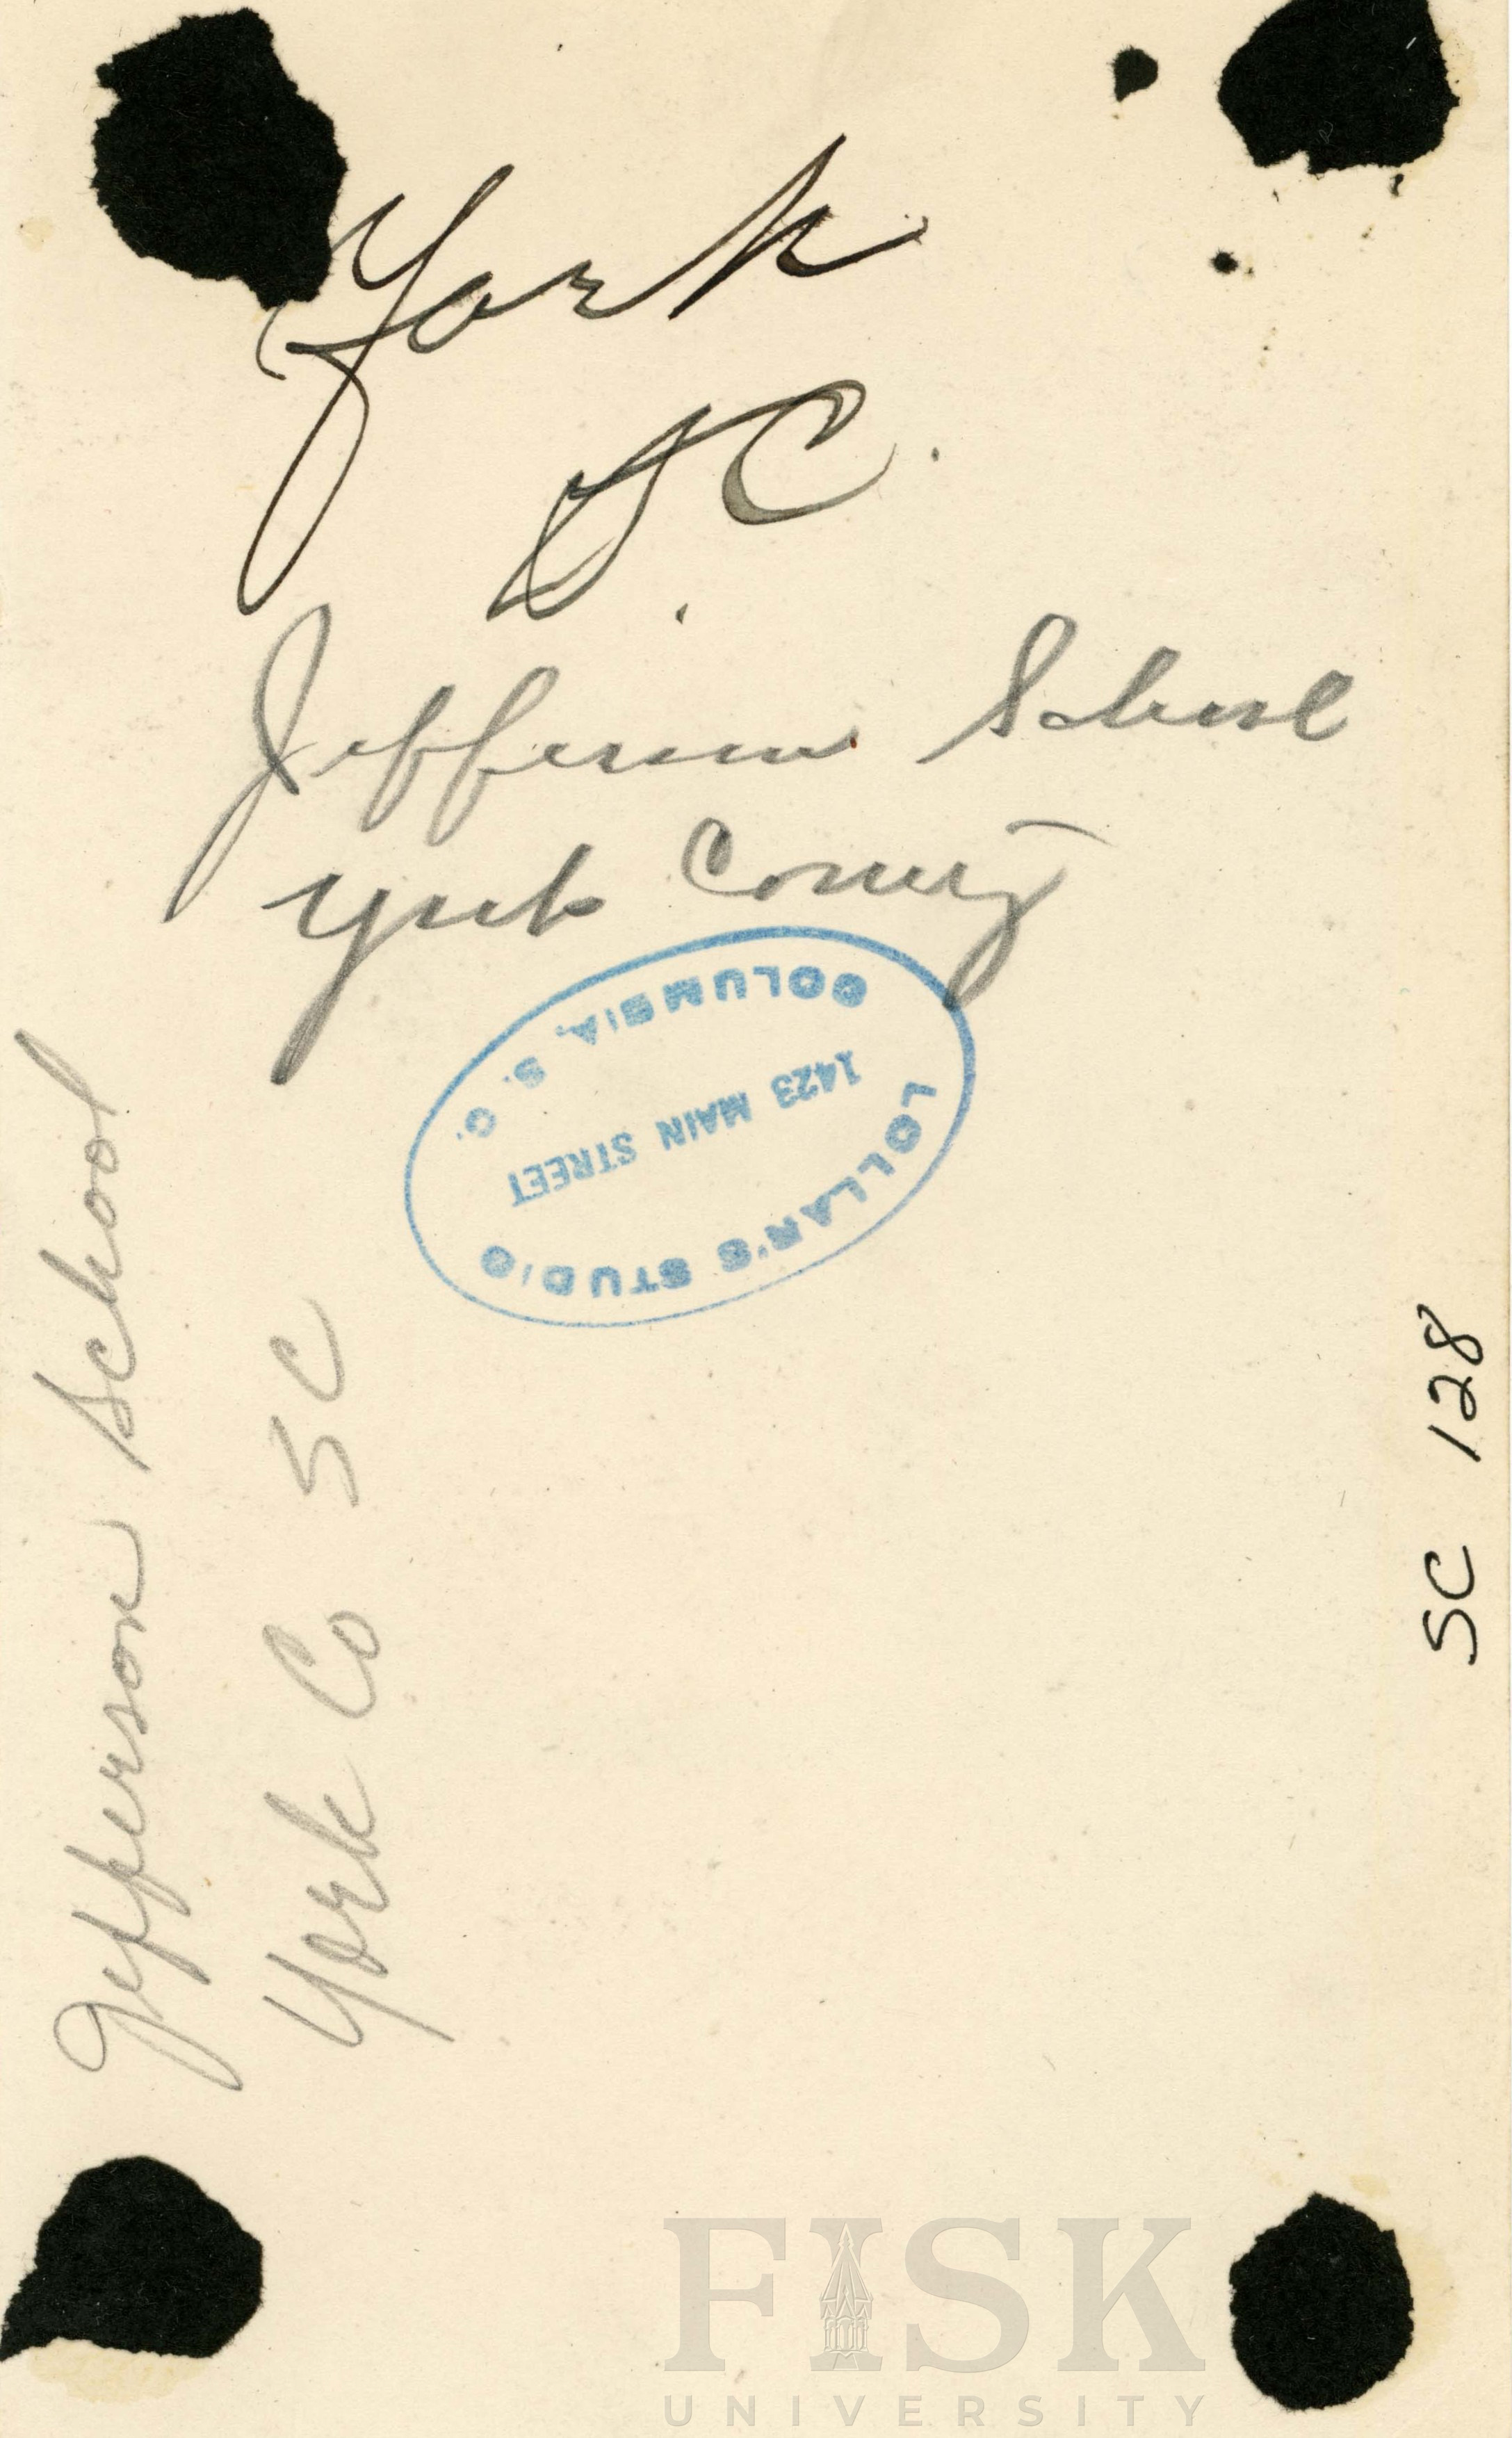 York
S.C.
Jefferson School
York County
LOLLAR'S STUDIO
1423 MAIN STREET
COLUMBIA, S. C.
Jefferson School
York Co SC
SC 128
FISK
UNIVERSITY